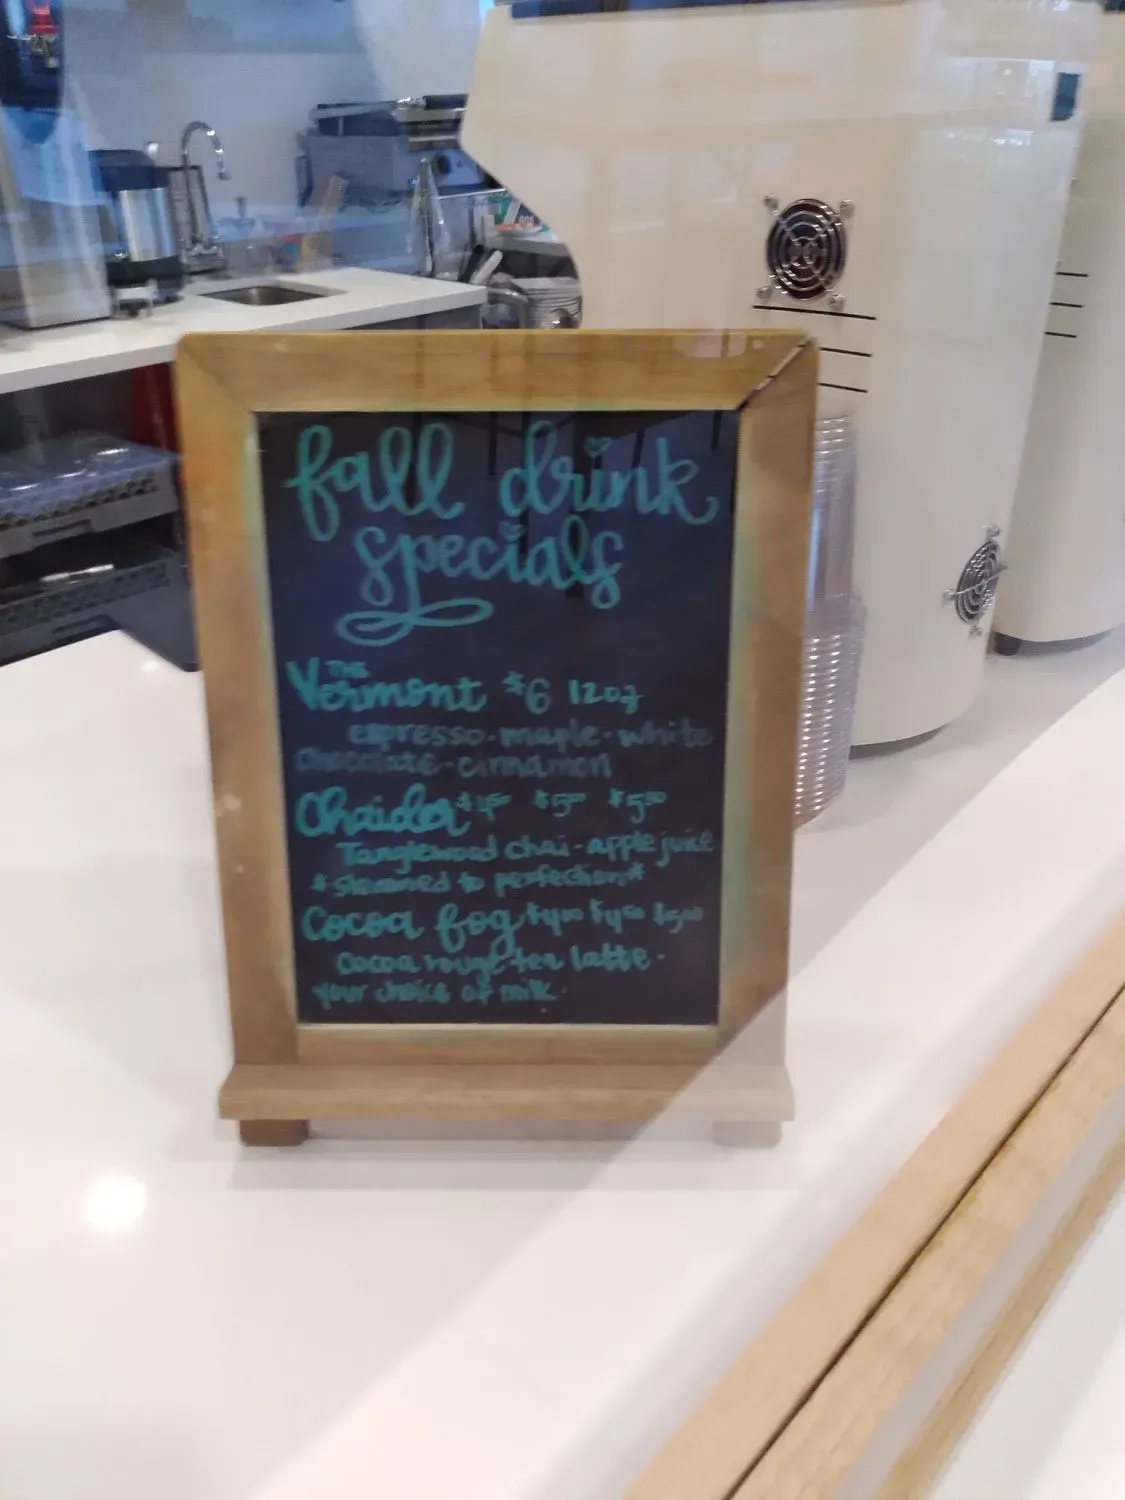 fall drink
specials
THE
Vermont $6 12oz
espresso-maple-white
chocolate-cinnamon
Chaider $4⁵⁰ $5⁰⁰ $5⁵⁰
Tanglewood chai-apple juice
*steamed to perfection*
Cocoa fog $4⁰⁰ $4⁵⁰ $5⁰⁰
Cocoa rouge tea latte.
your choice of milk.